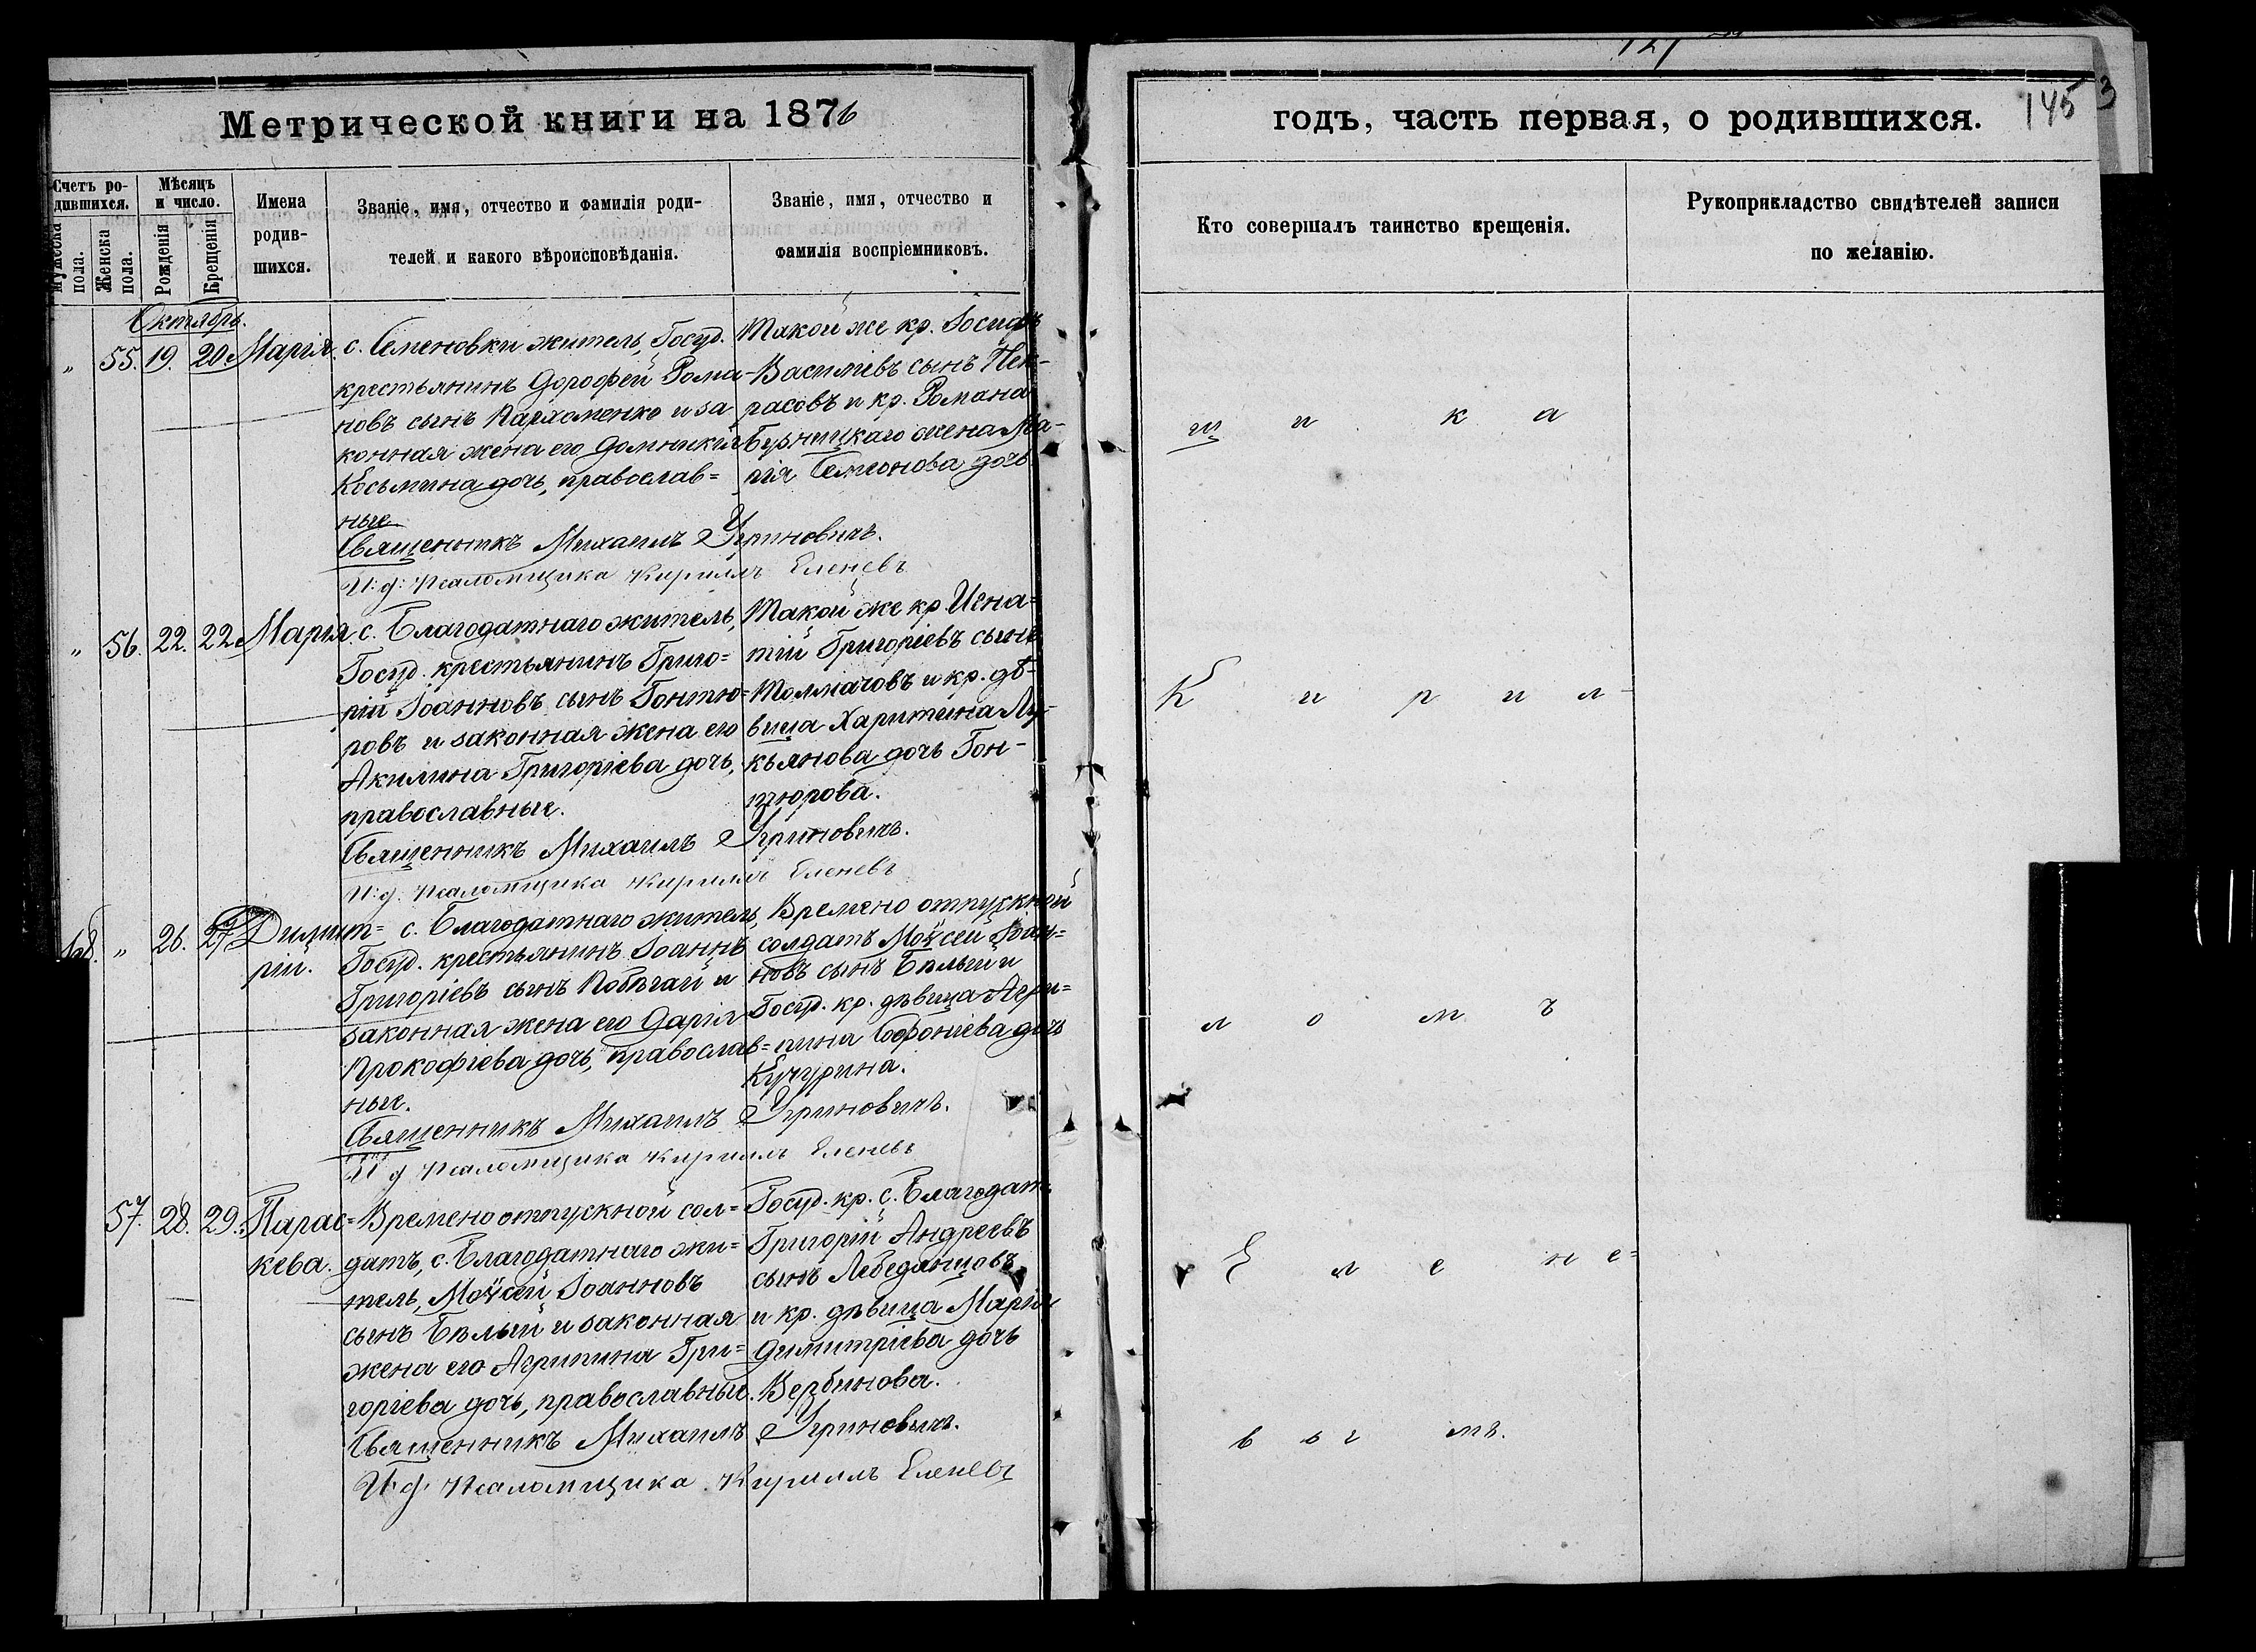 Метрической книги на 1876
Счетъ ро-
дившихся.
Мужеска
пола.
Женска
пола.
Мѣсяцъ
и число.
Рожденія
Крещенія
Имена
родив-
шихся.
Званіе, имя, отчество и фамилія роди-
телей и какого вѣроисповѣданія.
Званіе, имя, отчество и
фамилія воспріемниковъ.
Октябрь.
" 55. 19. 20. Марія
с. Семеновки житель, Госуд.
крестьянинъ Дорофей Рома-
новъ сынъ Пархоменко и за
конная жена его Домникія
Косьмина дочь, православ=
ные
Такой же кр. Іосифъ
Василіевъ сынъ Нек-
расовъ и кр. Романа
Бурницкаго жена Ма-
рія Семіонова дочь
Священникъ Михаилъ Угриновичъ.
И: д: псаломщика Кириллъ Еленевъ
" 56. 22. 22. Марія
с. Благодатнаго житель,
Госуд. крестьянинъ Григо=
рій Іоанновъ сынъ Гонтю=
ровъ и законная жена его
Акилина Григоріева дочь,
православные.
Такой же кр. Игна=
тій Григоріевъ сынъ
Толмачовъ и кр. дѣ-
вица Харитина Лу-
кьянова дочь Гон-
тюрова.
Священникъ Михаилъ Угриновичъ.
И: д. псаломщика Кириллъ Еленевъ
" 26. 27. Димит=
рій.
с. Благодатнаго житель,
Госуд. крестьянинъ Іоаннъ
Григоріевъ сынъ Побѣгай и
законная жена его Дарія
Прокофіева дочь, православ=
ные.
Времено отпускной
солдатъ Моѵсей Іоан=
новъ сынъ Бѣлый и
Госуд. кр. дѣвица Агри=
пина Софоніева дочь
Кучурина.
Священникъ Михаилъ Угриновичъ.
И д псаломщика Кириллъ Еленевъ
57. 28. 29. Парас=
кева.
Времено отпускной сол=
датъ, с. Благодатнаго жи=
тель, Моѵсей Іоанновъ
сынъ Бѣлый и законная
жена его Агрипина Гри=
горіева дочь, православные.
Госуд. кр. с. Благодат.
Григорій Андреевъ
сынъ Лебединцовъ
и кр. дѣвица Марія
Димитріева дочь
Вербинова.
Священникъ Михаилъ Угриновичъ.
И. д. псаломщика Кириллъ Еленевъ
145
годъ, часть первая, о родившихся.
Кто совершалъ таинство крещенія.
Рукоприкладство свидѣтелей записи
по желанію.
щ и к а
К и р и л-
л о м ъ
Е л е н е=
в ы мъ.